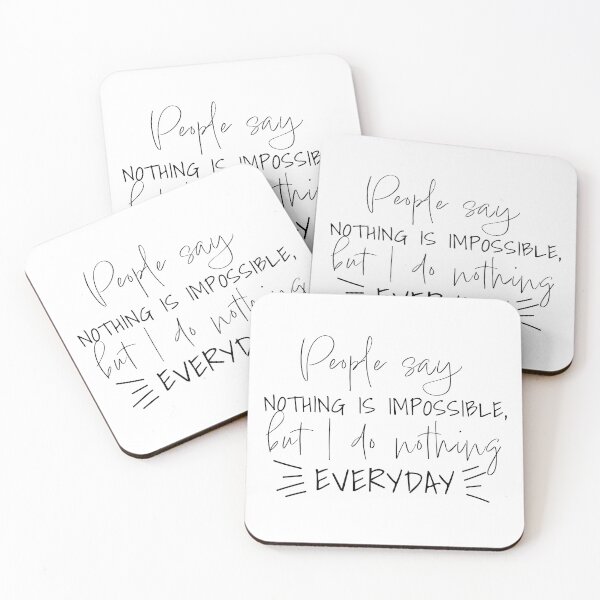 People say
NOTHING IS IMPOSSIB
People say
NOTHING IS IMPOSSIBLE,
but I do nothing
People say
NOTHING IS IMPOSSIBLE,
but I do nothing
EVERYDA
People say
NOTHING IS IMPOSSIBLE,
but I do nothing
EVERYDAY